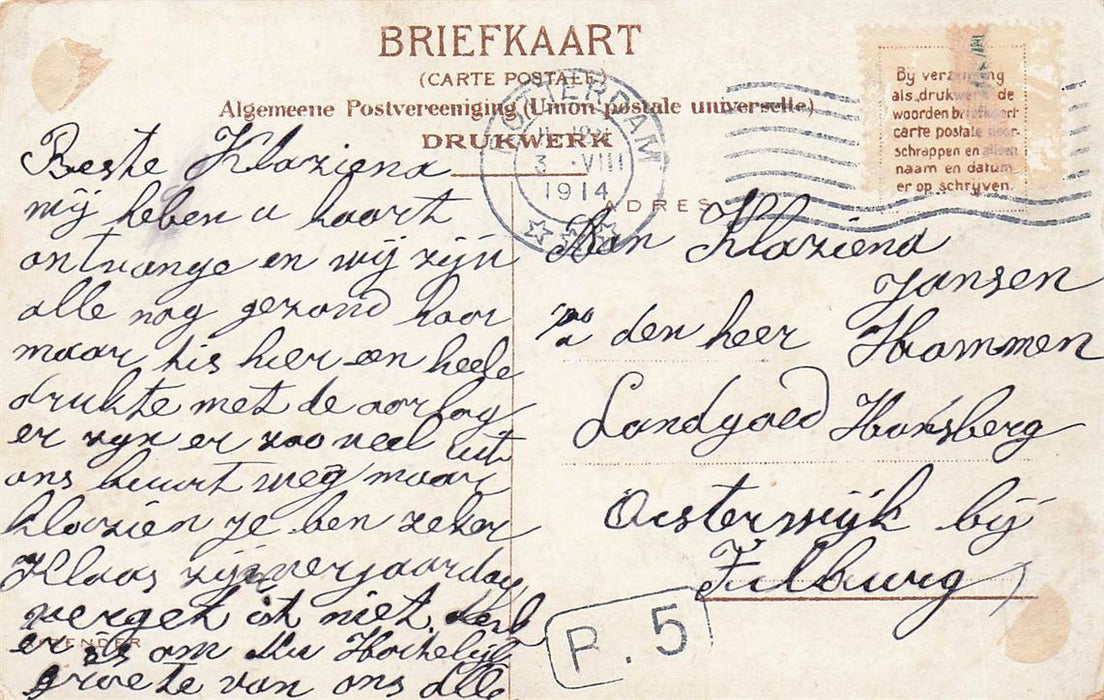 BRIEFKAART
(CARTE POSTALE)
Algemeene Postvereeniging (Union postale universelle)
DRUKWERK
AMSTERDAM
3 VIII
1914
By verzending
als „drukwerk de
woorden briefkaart
carte postale door-
schrappen en alleen
naam en datum
er op schryven.
ADRES
Beste Klaziena
wij heben u kaart
ontvange en wij zijn
alle nog gezond hoor
maar tis hier een heele
drukte met de oorlog
er zijn er zoo veel uit
ons buurt weg maar
klazien je ben zeker
Klaas zijn verjaardag
verget ist niet
er is om
groete van ons alle
AFZENDER
Aan Klaziena
Jansen
den heer Hammen
Landgoed
Oesterwijk bij
Tilburg
P. 5